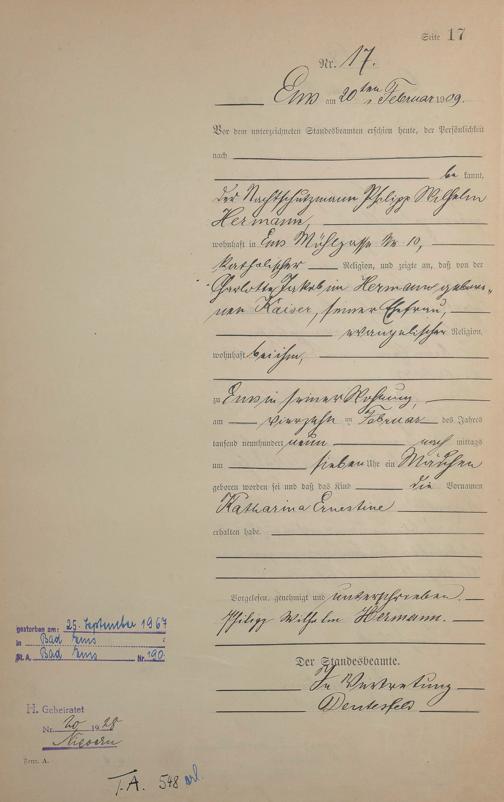 Seite 17
Nr. 17.
Ems am 20ten Februar 1909.
Vor dem unterzeichneten Standesbeamten erschien heute, der Persönlichkeit
nach
be kannt,
der Nachtschutzmann Philipp Wilhelm
Hermann,
wohnhaft in Ems Mühlgasse No 10,
katholischer Religion, und zeigte an, daß von der
Hermann gebore-
nen Kaiser, seiner Ehefrau,
evangelischer Religion,
wohnhaft bei ihm,
zu Ems in seiner Wohnung,
am vierzehn Februar des Jahres
tausend neunhundert neun nach mittags
um sieben Uhr ein Mädchen
geboren worden sei und daß das Kind die Vornamen
Katharina Ernestine
erhalten habe.
Vorgelesen, genehmigt und unterschrieben.
Philipp Wilhelm Hermann.
Der Standesbeamte.
In Vertretung
gestorben am: 25. September 1967
in Bad Ems
St. A. Bad Ems Nr. 190
H. Geheiratet
Nr. 20 1928
Nievern
Form. A.
T.A. 548